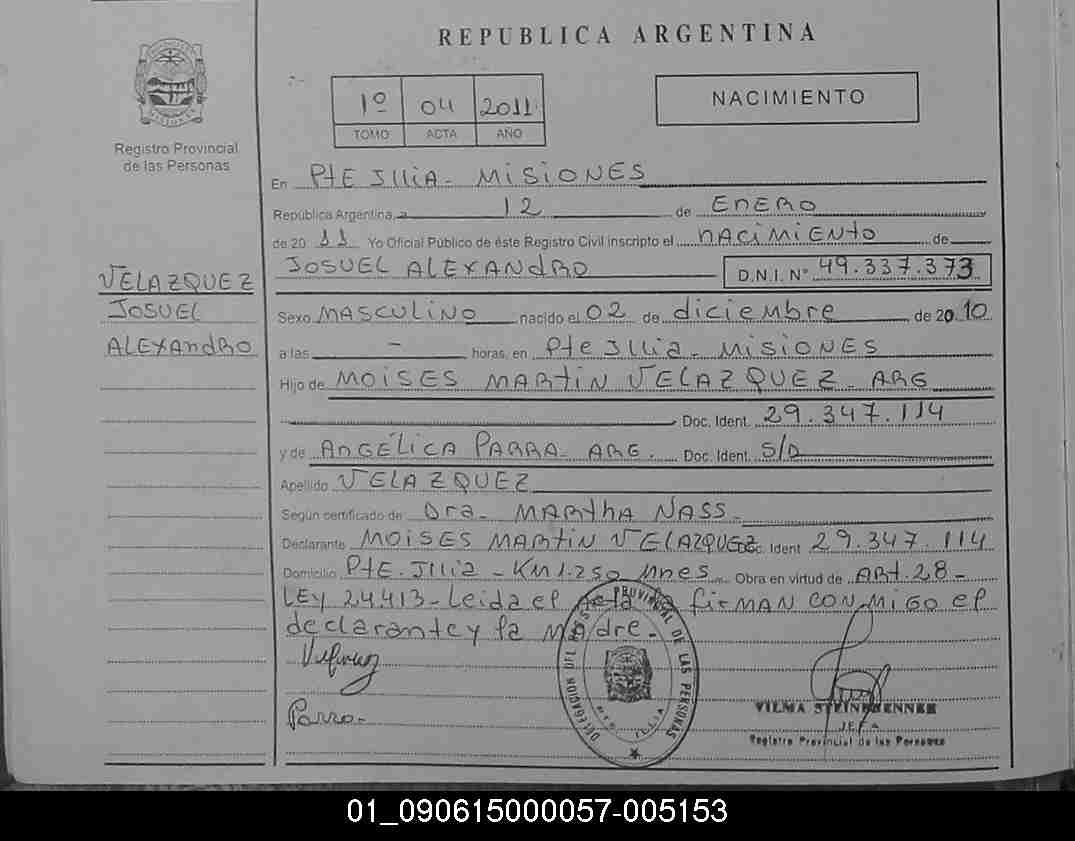 REPUBLICA ARGENTINA
1º 04 2011
TOMO ACTA AÑO
NACIMIENTO
Registro Provincial
de las Personas
En PtE JlliA - MiSiONES
República Argentina, a 12 de ENERO
de 20 11 Yo Oficial Público de éste Registro Civil inscripto el NACiMiENto de
JOSUEL ALEXANdRO D.N.I. Nº 49.337.373
VELAZQUEZ
JOSUEL
ALEXANdRO
Sexo MASCULiNO nacido el 02 de diciembre de 2010
a las - horas, en Pte Jllia - MISIONES
Hijo de MOISES MARtiN VELAZQUEZ - ARG
Doc. Ident. 29.347.114
y de ANGÉLICA PARRA - ARG. Doc. Ident. S/D
Apellido VELAZQUEZ
Según certificado de Dra. MARthA NASS -
Declarante MOISES MARtiN VELAZQUEZ Doc. Ident 29.347.114
Domicilio PtE. Jllia - KM 1.250 Mnes Obra en virtud de ARt. 28 -
LEY 24.413 - Leida el acta la fiRMAN CONMIGO el
declarante y la MAdre -
Parra -
DELEGACION DEL REG. PROVINCIAL DE LAS PERSONAS
PTE. ILLIA
VILMA STEINBRENNER
JEFA
Registro Provincial de las Personas
01_090615000057-005153